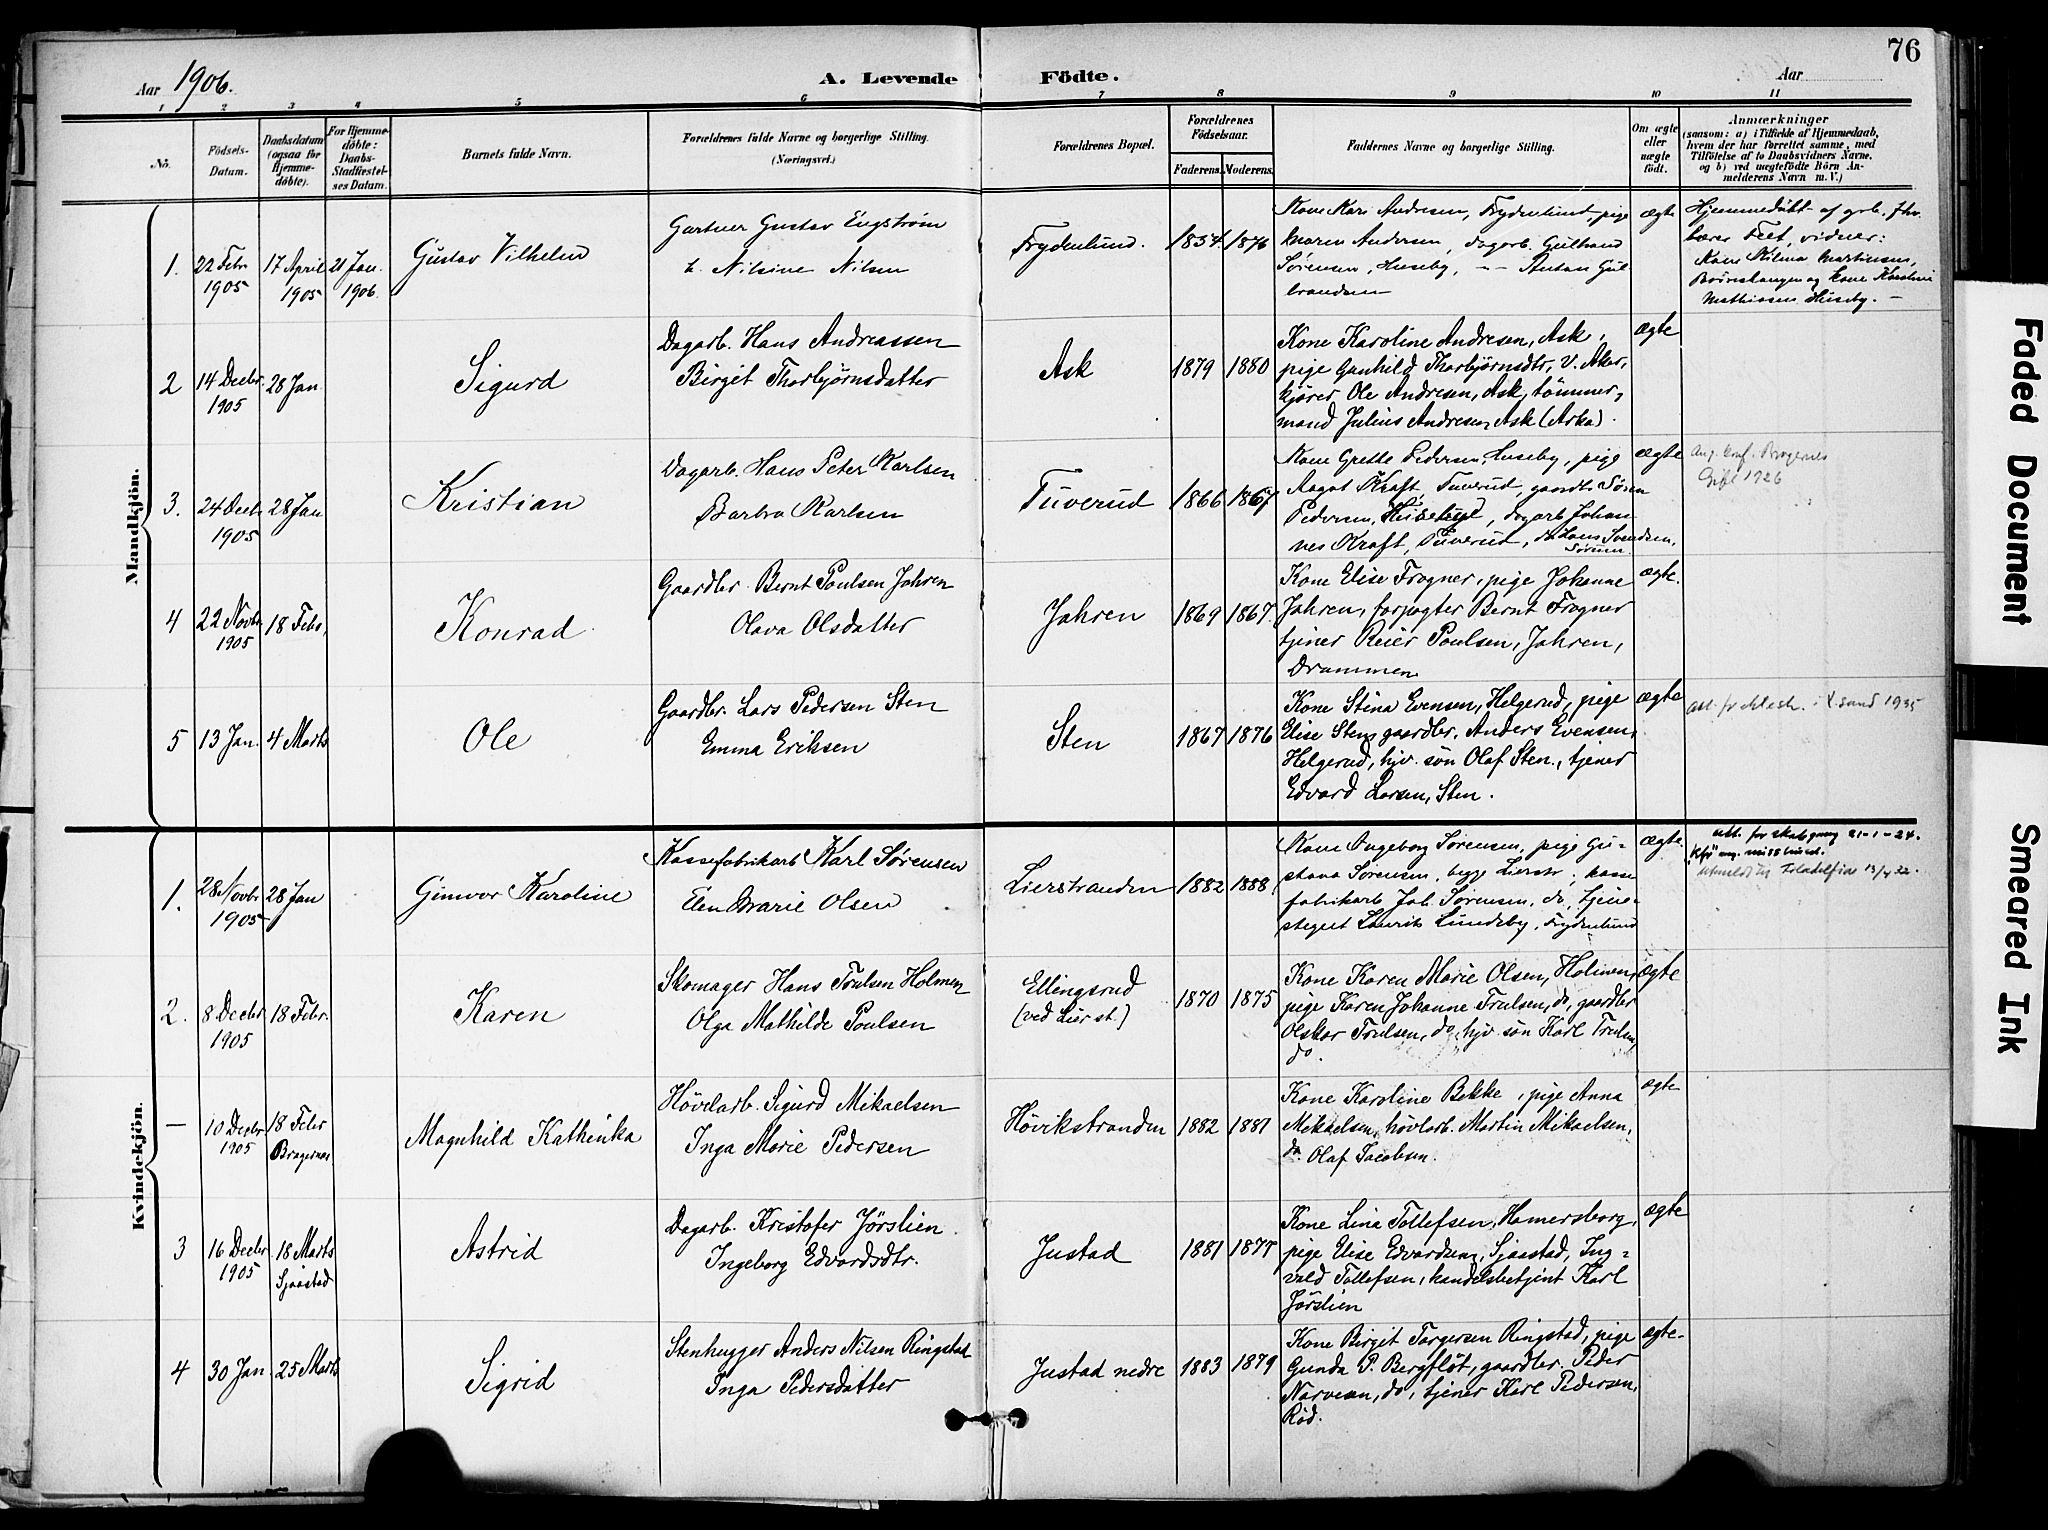 76
Aar 1906.
A. Levende Födte.
Aar
1 2 3 4 5 6 7 8 9 10 11
No.
Födsels-
Datum.
Daabsdatum
(ogsaa for
Hjemme-
döbte).
For Hjemme-
döbte:
Daabs-
Stadfæstel-
ses Datum.
Barnets fulde Navn.
Forældrenes fulde Navne og borgerlige Stilling.
(Næringsvei.)
Forældrenes Bopæl.
Forældrenes
Födselsaar.
Faderens.
Moderens.
Faddernes Navne og borgerlige Stilling.
Om ægte
eller
uægte
födt.
Anmærkninger
(saasom: a) i Tilfælde af Hjemmedaab,
hvem der har forrettet samme, med
Tilföielse af to Daabsvidners Navne.
og b) ved uægtefödte Börn An-
melderens Navn m. V.)
Mandkjön.
1.
22 Febr
1905
17 April
1905
21 Jan.
1906.
Gustav Vilhelm
Gartner Gustav Engström
h. Nilsine Nilsen
Frydenlund.
1854.
1876
Kone Kari Andresen, Frydenlund, pige
Maren Andersen, dagarb. Gulbrand
Sørensen, Huseby, -- Anton Gul
brandsen
ægte
Hjemmedöbt af
Feet, vidner:
Kone Hilma Martinsen,
og kone Karoline
Mathiasen Huseby. -
2
14 Decbr.
1905
28 Jan
Sigurd
Dagarb. Hans Andreassen
Birgit Thorbjørnsdatter
Ask
1879
1880
Kone Karoline Andresen, Ask,
pige Gunhild Thorbjørnsdtr, V. Aker,
kjører Ole Andresen, Ask, tömmer,
mand Julius Andresen Ask (Aska).
ægte
3.
24 Decbr.
1905
28 Jan
Kristian
Dagarb. Hans Peter Karlsen
Barbra Karlsen
Tuverud
1866
1867
Kone Grethe Pedersen, Huseby, pige
Aagot Kraft, Tuverud, gaardbr Søren
Pedersen, Huseby, dagarb Johan-
nes Kraft, Tuverud, do Hans Svendsen,
Sørum.
ægte
Ang. konf. Bragernes
Gift 1926
4
22 Novbr.
1905
18 Febr.
Konrad
Gaardbr. Bernt Poulsen Jahren
Olava Olsdatter
Jahren
1869
1867.
Kone Elise Frogner, pige Johanne
Jahren, forpagter Bernt Frogner
tjener Reier Poulsen, Jahren,
Drammen
ægte.
5
13 Jan.
4 Marts
Ole
Gaardbr. Lars Pedersen Sten
Emma Eriksen
Sten
1867
1876
Kone Stina Evensen, Helgerud, pige
Elise Sten, gaardbr. Anders Evensen,
Helgerud, hjv. søn Olaf Sten., tjener
Edvard Larsen, Sten.
ægte
K.sand 1935
Kvindekjön.
1.
28 Novbr
1905
28 Jan
Gunvor Karoline
Kassefabrikarb Karl Sørensen
Elen Marie Olsen
Lierstranden
1882
1888.
Kone Ingeborg Sørensen, pige Gu-
stava Sørensen, begge Lierstr; kasse
fabrikarb Joh. Sørensen, do, tjene-
stegut Laurits Lundeby, Frydenlund
ægte.
att. for 21-1-24.
Utmeldt til Filadelfia 13/4 32.
2.
8 Decbr
1905
18 Febr.
Karen
Skomager Hans Trulsen Holmen
Olga Mathilde Poulsen
Ellingsrud
(ved Lier st.)
1870
1875
Kone Karen Marie Olsen, Holmen,
pige Karen Johanne Trulsen, do, gaardbr
Olskar Trulsen, do, hjv. søn Karl Trulsen,
do.
ægte
-
10 Decbr
1905
18 Febr
Bragernes
Magnhild Kathinka
Hövelarb. Sigurd Mikaelsen
Inga Marie Pedersen
Høvikstranden
1882
1881
Kone Karoline Bekke, pige Anna
Mikaelsen, hövlarb. Martin Mikaelsen,
do. Olaf Jacobsen.
ægte
3
16 Decbr
1905
18 Marts
Sjaastad
Astrid
Dagarb. Kristofer Jörslien.
Ingeborg Edvardsdtr.
Justad
1881
1877
Kone Lina Tollefsen, Hamersborg,
pige Elise Edvardsen, Sjaastad, Ing-
vald Tollefsen, handelsbetjent Karl
Jörslien
ægte
4
30 Jan
25 Marts
Sigrid
Stenhugger Anders Nilsen Ringstad
Inga Pedersdatter
Justad nedre
1883
1879
Kone Birgit Torgersen Ringstad, pige
Gunda P. Bergflöt, gaardbr. Peder
Narvesen, do, tjener Karl Pedersen,
Röd.
ægte-
Faded Document
Smeared Ink